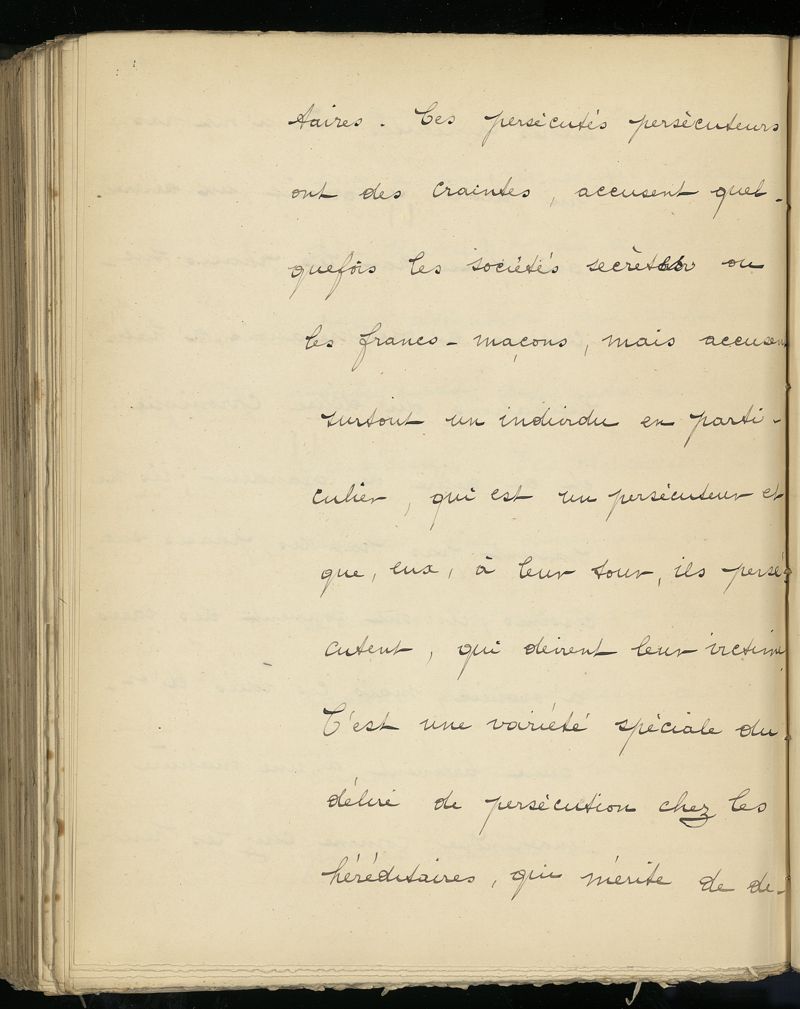 taires. Ces persécutés persécuteurs
ont des craintes, accusent quel-
quefois les sociétés secrètes ou
les francs-maçons, mais accusent
surtout un individu en parti-
culier, qui est un persécuteur et
que, eux, à leur tour, ils persé-
cutent, qui devient leur victime.
C'est une variété spéciale du
délire de persécution chez les
héréditaires, qui mérite de de-